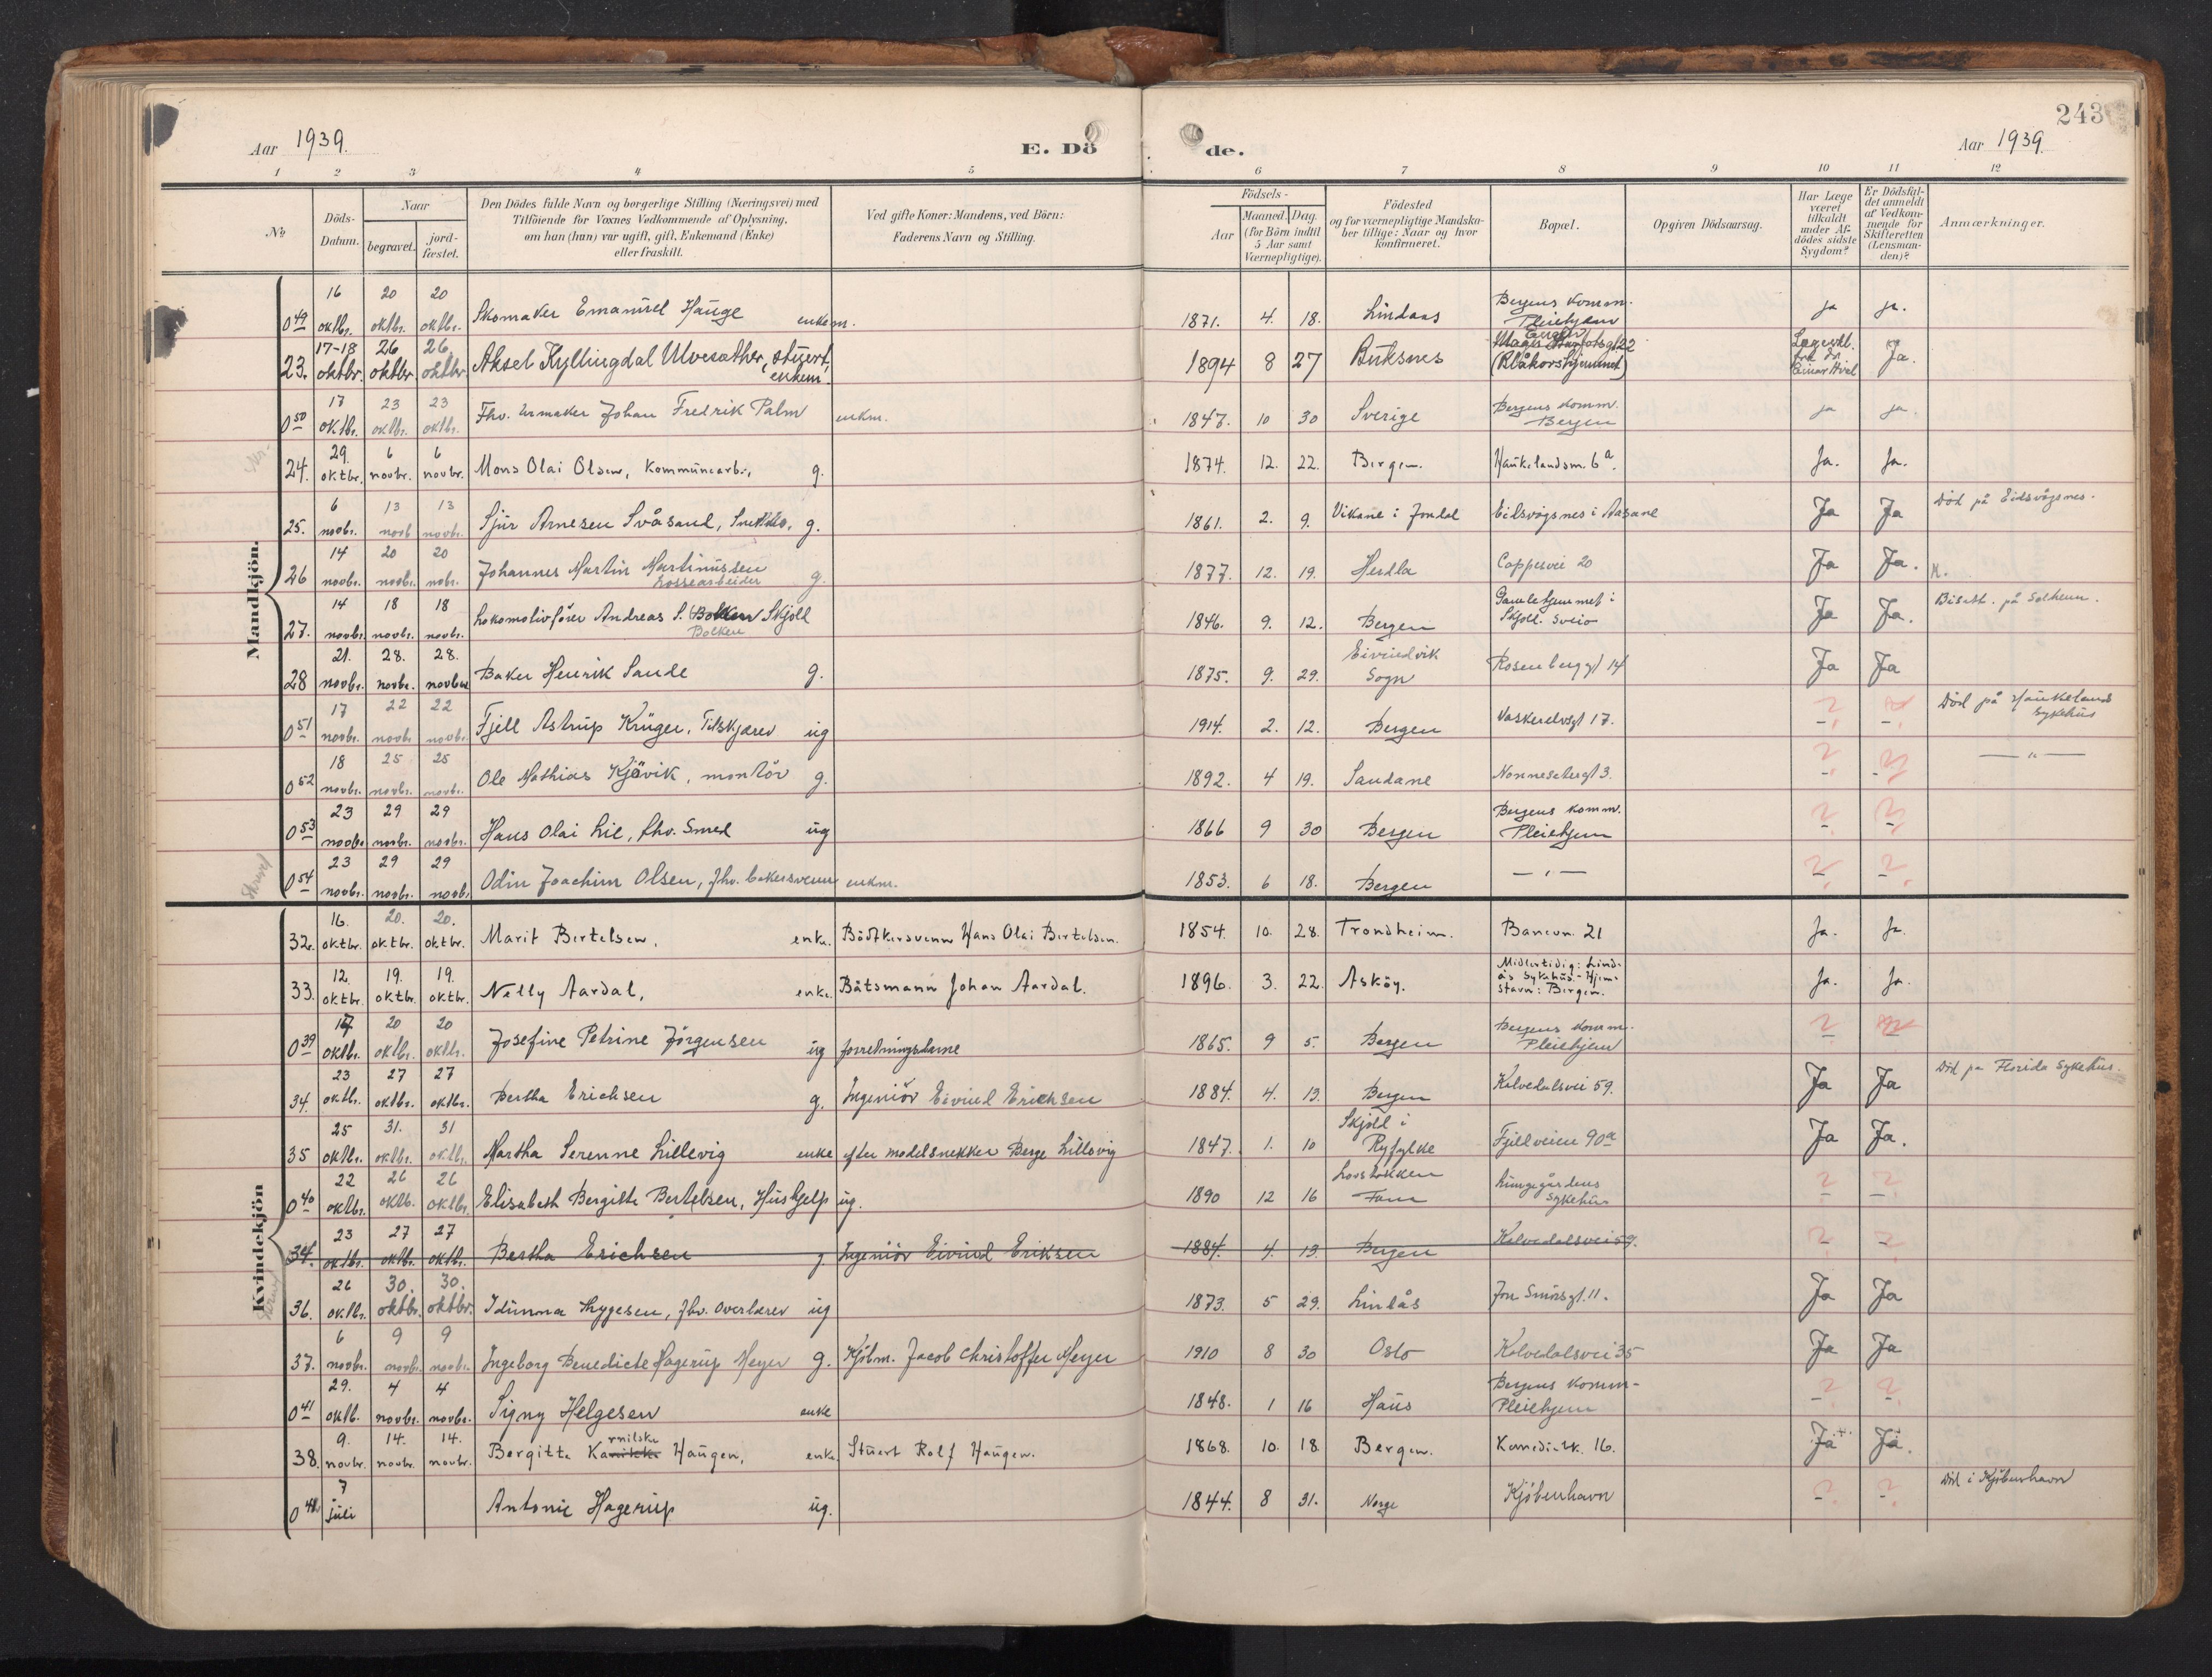 243
Aar 1939. E. Dö de. Aar 1939.
1 2 3 4 5 6 7 8 9 10 11 12
No
Döds-Datum.
Naar begravet. jord-fæstet.
Den Dödes fulde Navn og borgerlige Stilling (Næringsvei) med Tilföiende for Voxnes Vedkommende af Oplysning, om han (hun) var ugift, gift, Enkemand (Enke) eller fraskilt.
Ved gifte Koner: Mandens, ved Börn: Faderens Navn og Stilling.
Födsels- Aar Maaned. Dag. (for Börn indtil 5 Aar samt Værnepligtige).
Födested og for værnepligtige Mandska-ber tillige: Naar og hvor konfirmeret.
Bopæl.
Opgiven Dödsaarsag.
Har Læge været tilkaldt under Af-dödes sidste Sygdom?
Er Dödsfal-det anmeldt af Vedkom-mende for Skifteretten (Lensman-den)?
Anmærkninger.
Mandkjön.
0 49 16 oktbr. 20 oktbr. 20 oktbr. Skomaker Emanuel Hauge enkem. 1871. 4. 18. Lindaas Bergens komm. Pleiehjem ja ja.
23. 17-18 oktbr. 26 oktbr. 26. oktbr. Aksel Kyllingdal Ulvesæther, stuert, enkem. 1894 8 27 Buksnes (Blåkorshjemmet) Ja.
0 50 17 oktbr. 23 oktbr. 23 oktbr. Fhv. urmaker Johan Fredrik Palm enkm. 1847. 10 30 Sverige Bergens komm. Bergen ja ja.
24. 29. oktbr. 6 novbr. 6 novbr. Mons Olai Olsen, Kommunearb., g. 1874. 12. 22. Bergen. Haukelandsm. 6 a. Ja. Ja.
25. 6 novbr. 13 novb 13 novbr. Sjur Arnesen Svåsand, g. 1861. 2. 9. Vikane i Jondal Eidsvågsnes i Aasane Ja Ja Död på Eidsvågsnes.
26 14 novbr. 20 novbr. 20 nobr. Johannes Martin Martinussen Lossearbeider g. 1877. 12. 19. Herdla Cappesvei 20 Ja Ja. K.
27. 14 novbr. 18 novbr. 18 novbr. Lokomotivförer Andreas S. Bolken Skjold Bolken 1846. 9. 12. Bergen Gamlehjemmet i Skjold. Sveio Ja Ja. Bisatt. på Solheim.
28 21. novbr. 28. novbr. 28. novbr. Baker Henrik Sande g. 1875. 9. 29. Eivindvik Sogn Rosenberggt 14 Ja Ja
0 51 17 novbr. 22 novbr. 22 novbr. Fjell Astrup Krüger, Tilskjærer ug 1914. 2. 12. Bergen Vaskerelvsgt 17. ? - - Död på Haukelands Sykehus
0 52 18 novbr. 25 novbr. 25 novbr. Ole Mathias Kjövik, montör g. 1892. 4 19. Sandane Nonnesetergt 3. ? - - ? — " —
0 53 23 novbr. 29 novbr. 29 novbr. Hans Olai Lie, fhv. Smed ug 1866 9 30 Bergen Bergens komm. Pleiehjem ? - - ?
0 54 23 novbr. 29 novbr. 29 novbr. Odin Joachim Olsen, fhv. bakersvenn enkm. 1853. 6 18. Bergen — " — ? - - ?
Kvindekjön
32. 16. oktbr. 20. oktbr. 20. oktbr. Marit Bertelsen, enke. Bödtkersvenn Hans Olai Bertelsen. 1854. 10. 28. Trondheim. Banevn. 21 Ja. Ja.
33. 12. oktbr. 19. oktbr. 19. oktbr. Nelly Aardal, enke. Båtsmann Johan Aardal. 1896. 3. 22. Asköy. Midlertidig: Lind-ås sykehus. - Hjem-stavn: Bergen. Ja. Ja.
0 39 17 oktbr. 20 oktbr. 20 oktbr. Josefine Petrine Jörgensen ug forretningsdame 1865. 9 5. Bergen Bergens komm. Pleiehjem ? - -
34. 23 oktb. 27 oktbr. 27 oktbr. Bertha Erichsen g. Ingeniör Eivind Erichsen 1884. 4. 13. Bergen Kalvedalsvei 59. Ja Ja Död på Florida Sykehus.
35 25 oktbr. 31. oktbr. 31 oktbr. Martha Serenne Lillevig enke efter modelsnekker Berge Lillevig 1847. 1. 10 Skjold i Ryfylke Fjellveien 90 a Ja Ja.
0 40 22 oktbr. 26 oktb. 26 oktbr. Elisabeth Bergitte Bertelsen, Hushjelp ug. 1890 12 16 Lövstakken Fana Lungegårdens Sykehus ? - - ?
34. 23 oktbr. 27 oktbr. 27 oktbr. Bertha Erichsen g Ingeniör Eivind Eriksen 1884. 4. 13 Bergen Kalvedalsvei 59. ? - ?
36. 26 oktb. 30. oktbr. 30. oktbr. Idunna Thygesen, fhv. overlærer ug 1873. 5 29. Lindås Jon Smörsgt. 11. Ja Ja
37. 6 novbr. 9 novbr. 9 novbr. Ingeborg Benedicte Hagerup Meyer g. Kjöbm. Jacob Christoffer Meyer 1910 8 30 Oslo Kalvedalsvei 35 Ja Ja
0 41 29. oktb. 4 novbr. 4 novbr. Signy Helgesen enke 1848. 1 16 Haus Bergens komm-Pleiehjem ? - - ?
38. 9. novbr. 14. novbr. 14. novbr. Bergitte Kamilska Haugen, enke. Stuert Rolf Haugen. 1868. 10. 18. Bergen. Komediebk. 16. Ja Ja.
0 42 7 juli Antonie Hagerup ug. 1844. 8 31. Norge Kjöbenhavn ? - - ? Död i Kjöbenhavn